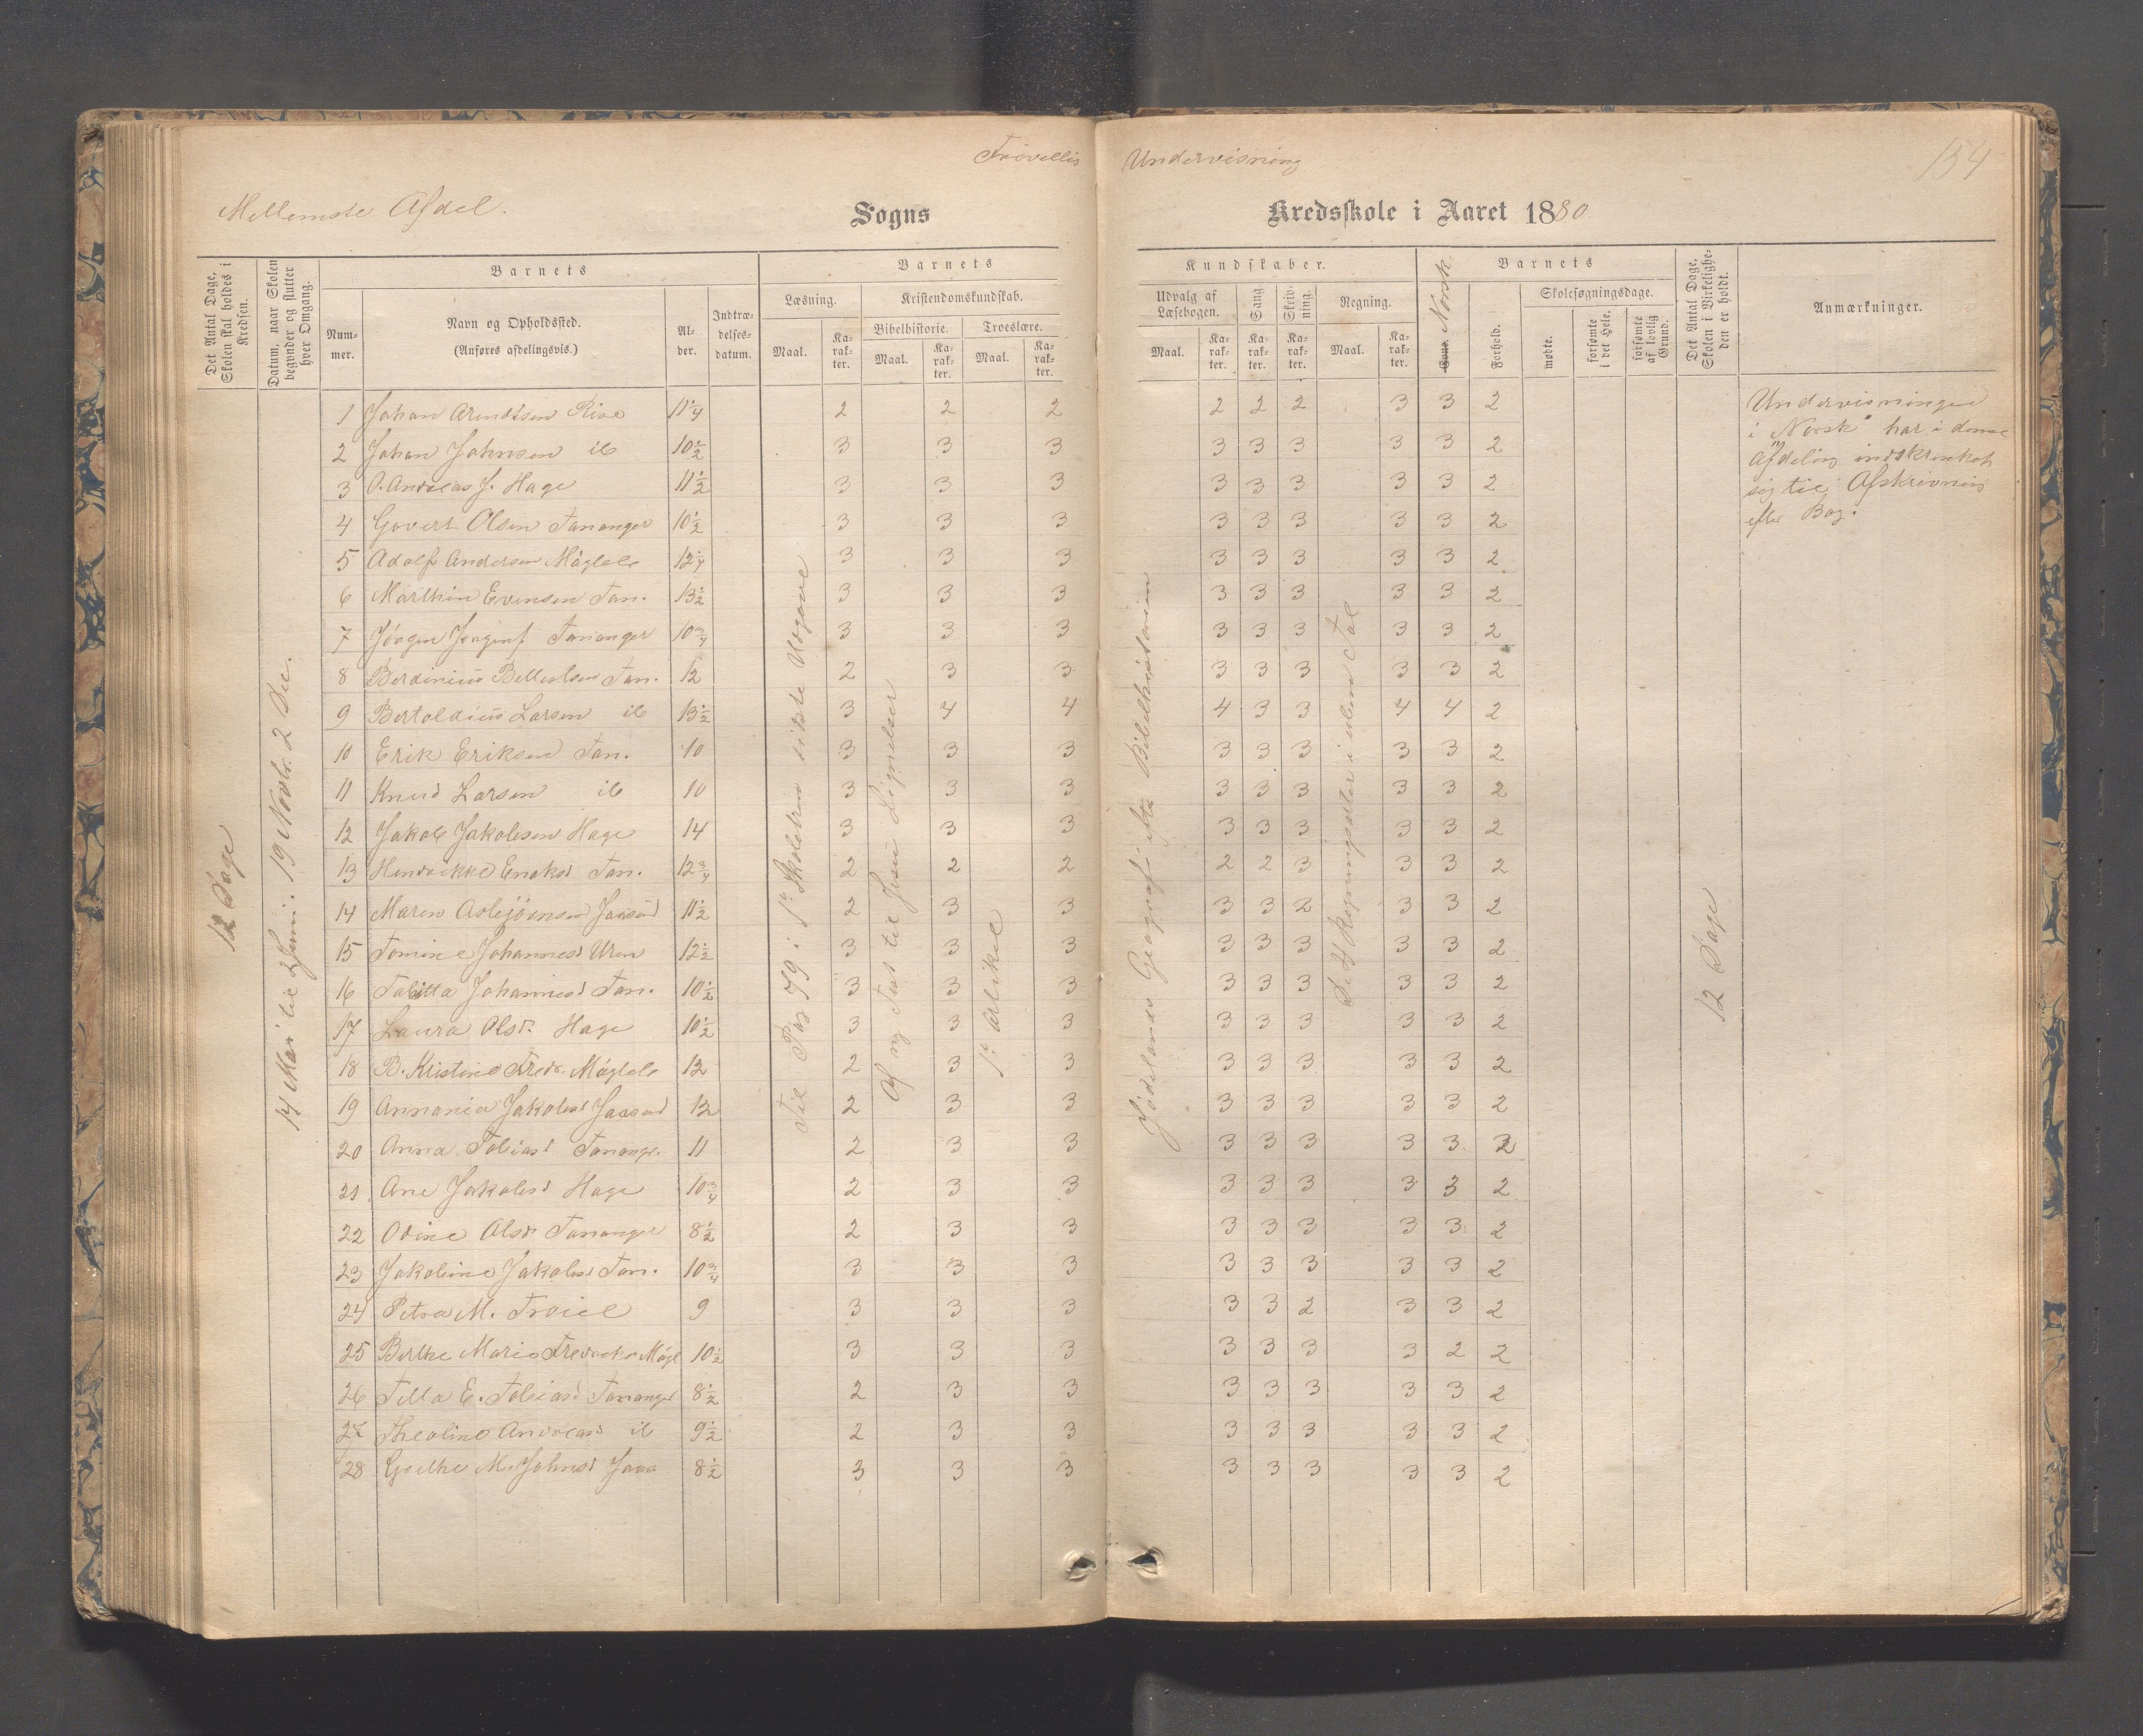 Frivillig Undervisning 154
Mellemste Afdel.
Sogns Kredsskole i Aaret 1880
Det Antal Dage, Skolen skal holdes i Kredsen.
Datum, naar Skolen begynder og slutter hver Omgang.
Barnets
Num-mer.
Navn og Opholdssted.
(Anføres afdelingsvis.)
Al-der.
Indtræ-delses-datum.
Barnets
Læsning.
Maal.
Ka-rak-ter.
Kristendomskundskab.
Bibelhistorie.
Maal.
Ka-rak-ter.
Troeslære.
Maal.
Ka-rak-ter.
Kundskaber.
Udvalg af Læsebogen.
Maal.
Ka-rak-ter.
Sang.
Ka-rak-ter.
Skriv-ning.
Ka-rak-ter.
Regning.
Maal.
Ka-rak-ter.
Barnets
Evne. Norsk
Forhold.
Skolesøgningsdage.
mødte.
forsømte i det Hele.
forsømte af lovlig Grund.
Det Antal Dage, Skolen i Virkelighe-den er holdt.
Anmærkninger.
1 Johan Arndtsen Risa 11 1/4 2 2 2 2 2 2 3 3 2
2 Johan Johnsen ib 10 1/2 3 3 3 3 3 3 3 3 2
3 O. Andreas J. Hage 11 1/2 3 3 3 3 3 3 3 3 2
4 Govert Olsen Tananger 10 1/2 3 3 3 3 3 3 3 3 2
5 Adolf Andersen Mögleb 12 1/4 3 3 3 3 3 3 3 3 2
6 Marthin Evensen Tan. 13 1/2 3 3 3 3 3 3 3 3 2
7 Jörgen Jörgens. Tananger 10 3/4 3 3 3 3 3 3 3 3 2
8 Berdinius Bellestsen Tan. 12 2 3 3 3 3 3 3 3 2
9 Bertoldius Larsen ib 13 1/2 3 4 4 4 3 3 4 4 2
10 Erik Eriksen Tan. 10 3 3 3 3 3 3 3 3 2
11 Knud Larsen ib 10 3 3 3 3 3 3 3 3 2
12 Jakob Jakobsen Hage 14 3 3 3 3 3 3 3 3 2
13 Hendrikke Enoksd Tan. 12 3/4 2 2 2 2 2 3 3 3 2
14 Maren Asbjörnsen Jaasund 11 1/2 2 3 3 3 3 2 3 3 2
15 Tomine Johannesd Uren 12 1/2 3 3 3 3 3 3 3 3 2
16 Tabitta Johannesd Tan. 10 1/2 3 3 3 3 3 3 3 3 2
17 Laura Olsd. Hage 10 1/2 3 3 3 3 3 3 3 3 2
18 B. Kristine Fredr. Mögleb 12 2 3 3 3 3 3 3 3 2
19 Annania Jakobsd Jaasund 12 2 3 3 3 3 3 3 3 2
20 Anna Tobiasd Tanangr. 11 2 3 3 3 3 3 3 3 2
21 Ane Jakobsd Hage 10 3/4 2 3 3 3 3 3 3 3 2
22 Odine Olsd Tananger 8 1/2 2 3 3 3 3 3 3 3 2
23 Jakobine Jakobsd Tan. 10 3/4 3 3 3 3 3 3 3 3 2
24 Petra M. 9 3 3 3 3 3 2 3 3 2
25 Berthe Marie Fredriks Mögl 10 1/2 3 3 3 3 3 3 3 2 2
26 Tilla E. Tobiasd Tananger 8 1/2 2 3 3 3 3 3 3 3 2
27 Theoline Andreasd ib 9 1/2 2 3 3 3 3 3 3 3 2
28 Goethe M. Johnsd Jaas 8 1/2 3 3 3 3 3 3 3 3 2
12 Dage
14 Mai til 2 Juni. 19 Novbr. 2 Dec.
Til Pag 79 i 1ste Skoletrin sidste Udgave
Af ny Test til Jesu Lignelser
1ste Artikel
Jödelands Geografi etc Bibelhistorien
De 4 Regningsarter i ubenævnte Tal
12 Dage
Undervisningen
i "Norsk" har i denne
Afdeling indskrænket
sig til Afskrivning
efter Bog.